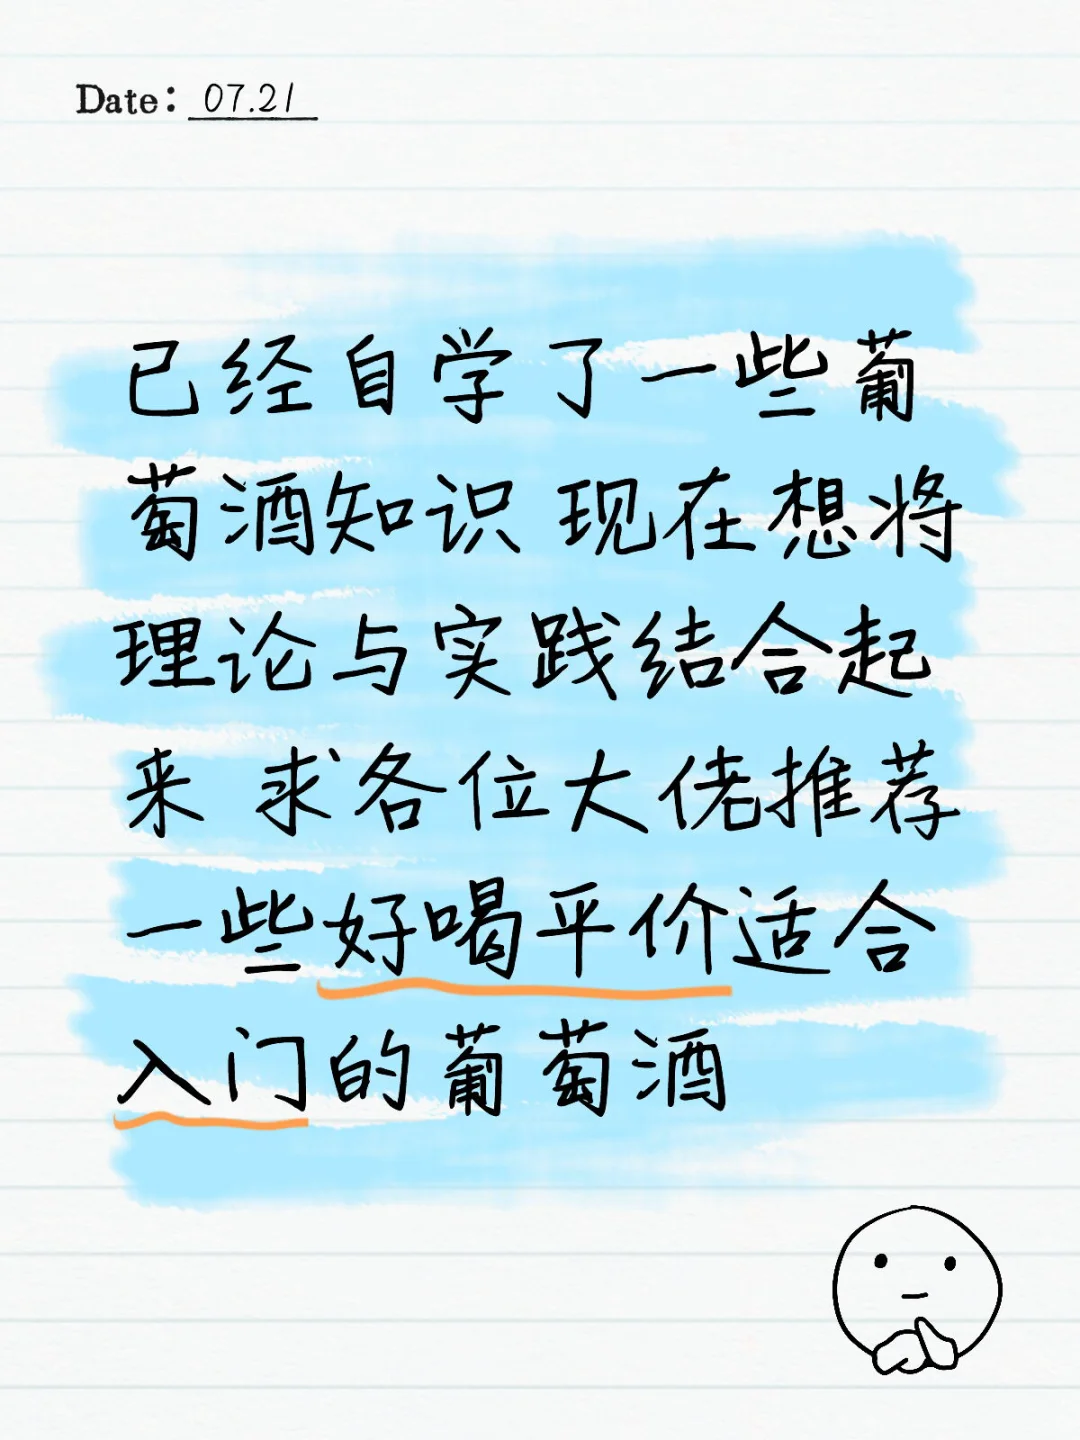 Date: 07.21
已经自学了一些葡
萄酒知识 现在想将
理论与实践结合起
来 求各位大佬推荐
一些好喝平价适合
入门的葡萄酒